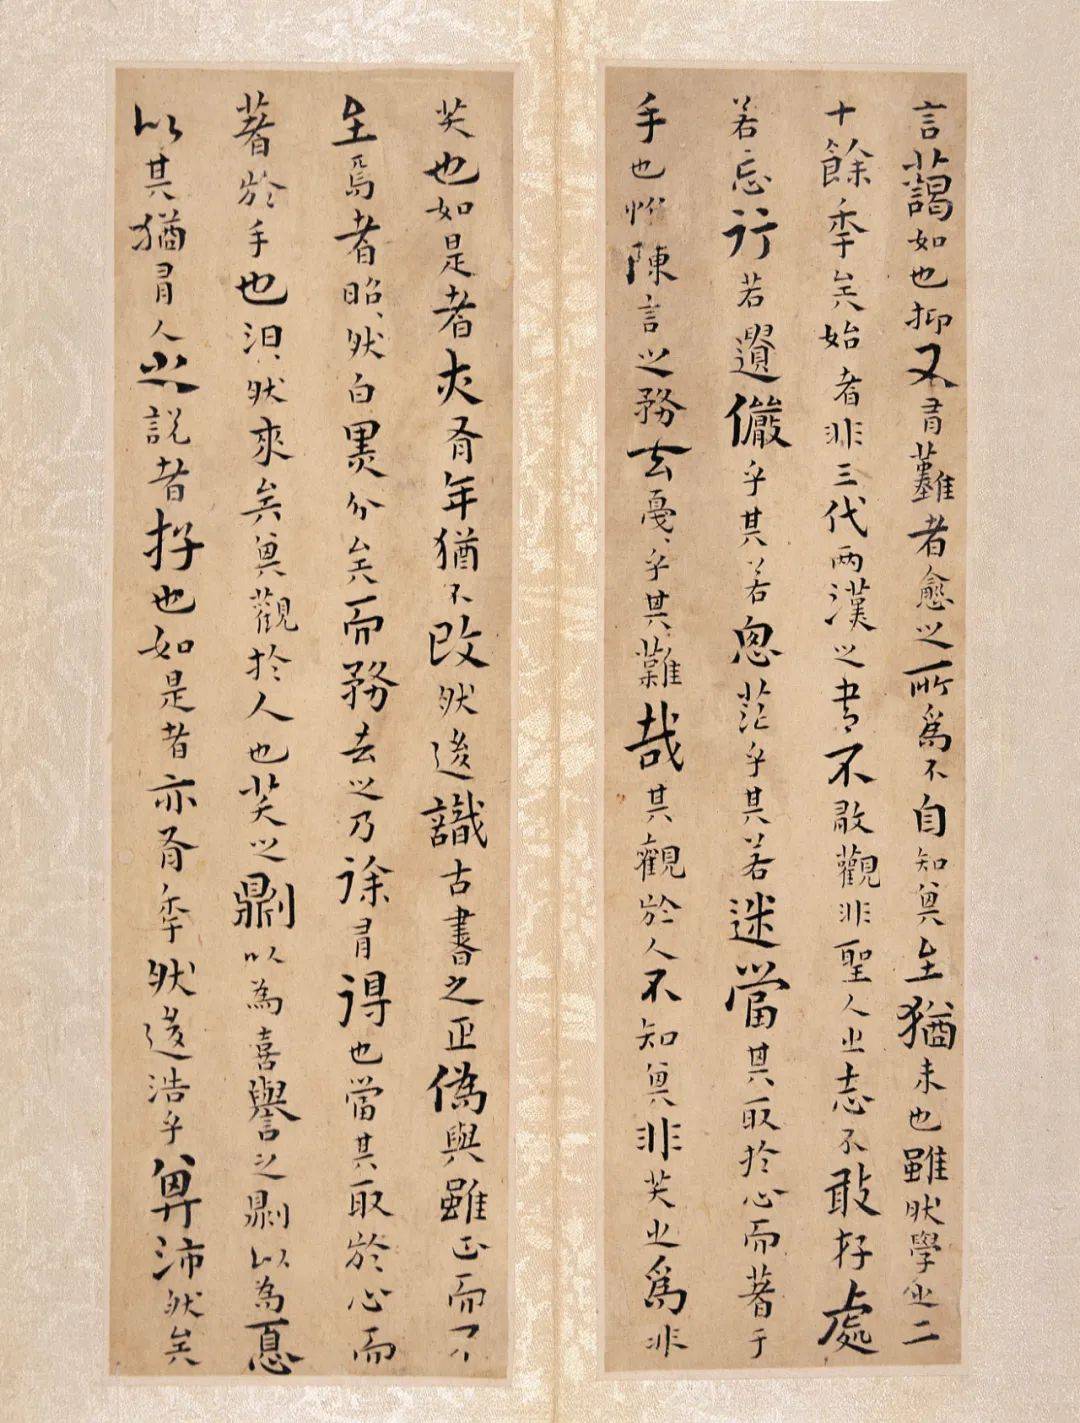 言藹如也抑又有難者愈之所爲不自知其至猶未也雖然學之二
十餘年矣始者非三代兩漢之書不敢觀非聖人之志不敢存處
若忘行若遺儼乎其若思茫乎其若迷當其取於心而著于
手也惟陳言之務去戛〻乎其難哉其觀於人不知其非笑之爲非
笑也如是者亦有年猶不改然後識古書之正偽與雖正而不
至焉者昭〻然白黑分矣而務去之乃徐有得也當其取於心而
著於手也汩〻然來矣其觀於人也笑之則以為喜譽之則以為憂
以其猶有人之說者存也如是者亦有年然後浩乎其沛然矣